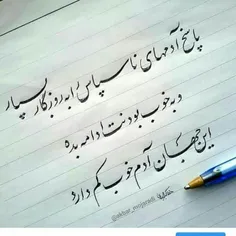 پاسخ آدمهای ناسپاس را به روزگار بسپار
و به خوب بودنت ادامه بده
این جهان آدم خوب کم دارد
@akbar_mojaradi